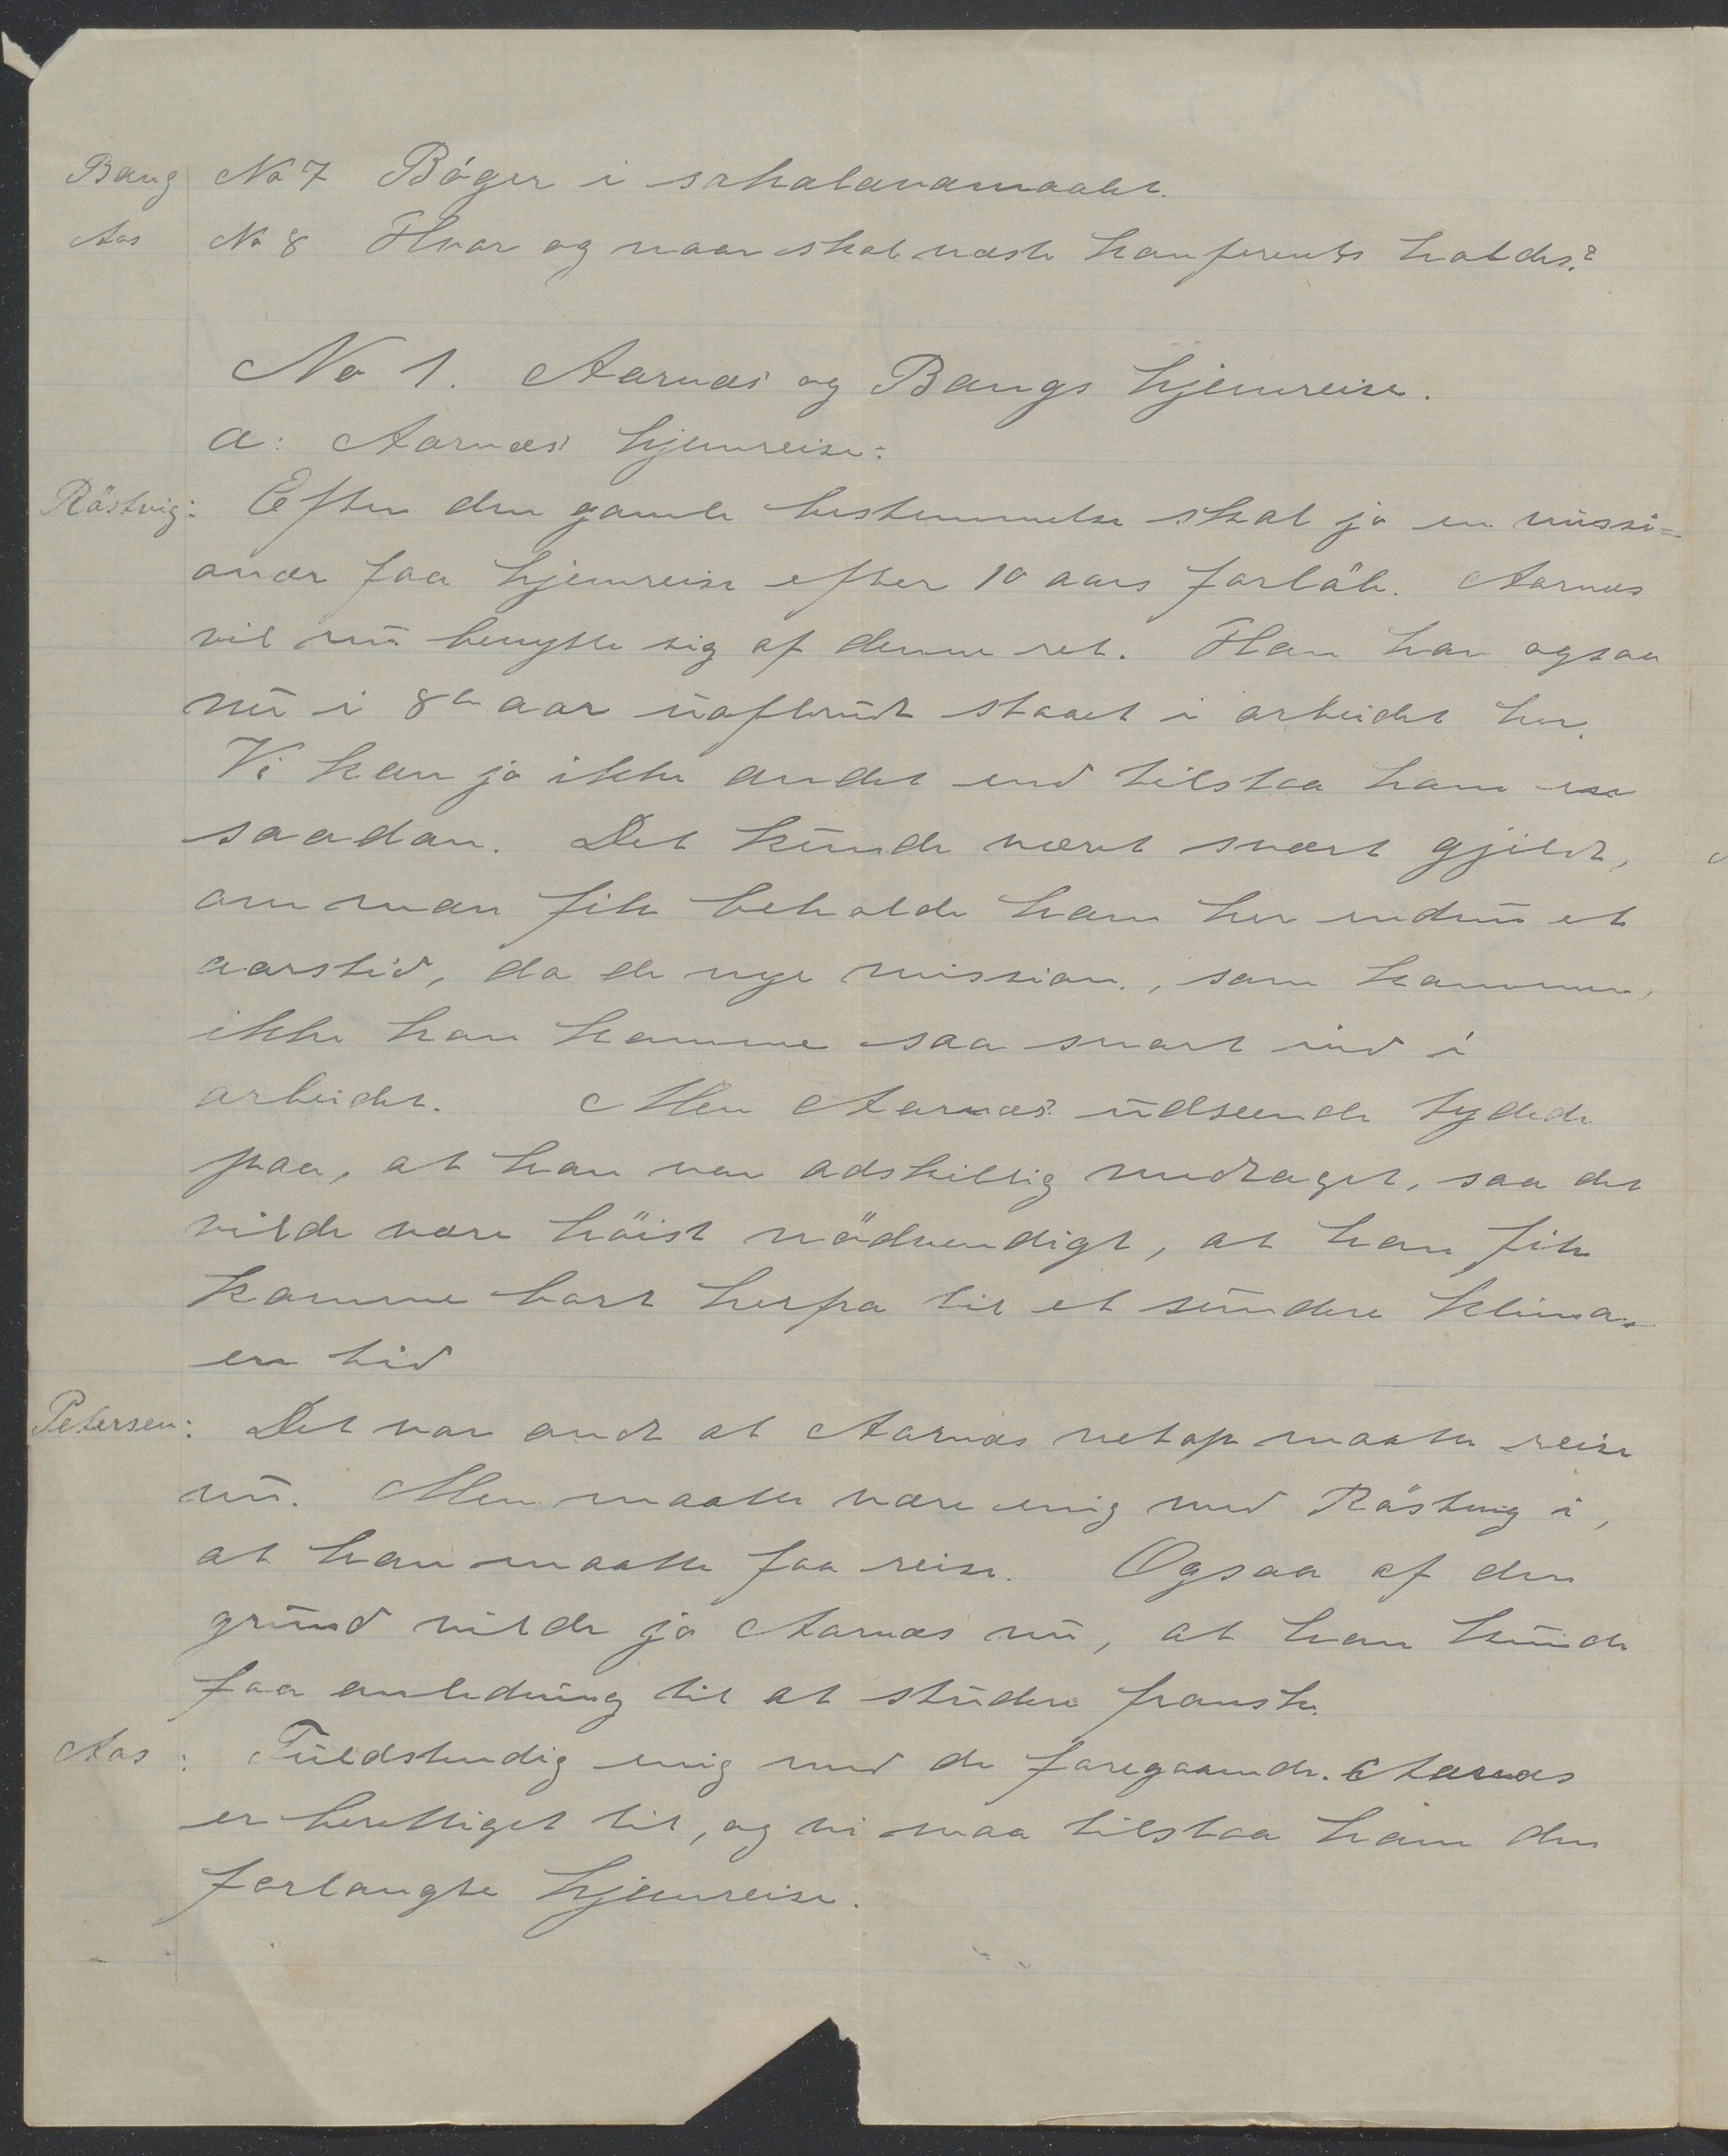 Bang No 7 Böger i sakalavamaalet.
Aas No 8 Hvor og naar skal næste konferents holdes?
No 1. Aarnæs' og Bangs hjemreise.
a: Aarnæs' hjemreise:
Röstvig: Efter den gamle bestemmelse skal jo en missi=
onær faa hjemreise efter 10 aars forløb. Aarnæs
vil nū benytte sig af denne ret. Han har ogsaa
nū i 8de aar ūafbrūdt staaet i arbeidet her.
Vi kan jo ikke andet end tilstaa ham en
saadan. Det kūnde været svært gjildt,
om man fik beholde ham her endnū et
aarstid, da de nye mission., som kommer,
ikke kan komme saa snart ind i
arbeidet. Men Aarnæs' ūdseende tydede
paa, at han var adskillig medtaget, saa det
vilde være höist nödvendigt, at han fik
komme bort herfra til et sūndere klima
en tid
Petersen: Det var ondt at Aarnæs netop maatte reise
nū. Men maatte være enig med Röstvig i,
at han maatte faa reise. Ogsaa af den
grūnd vilde jo Aarnæs nū, at han kūnde
faa anledning til at stūdere franske.
Aas: Fūldstendig enig med de foregaaende. Aarnæs
er berettiget til, og vi maa tilstaa ham den
forlangte hjemreise.